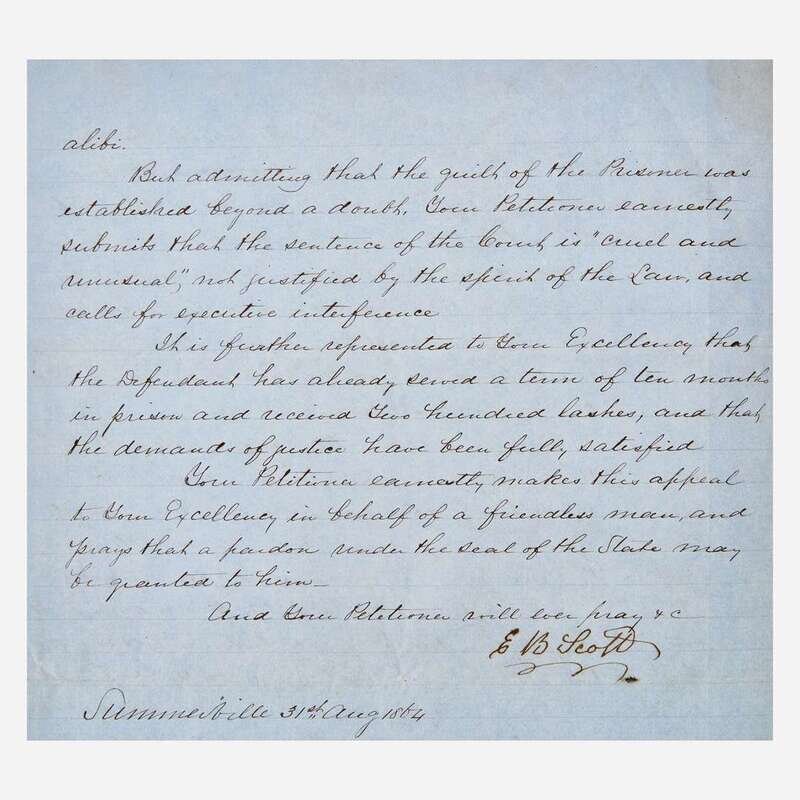 alibi.
But admitting that the guilt of the Prisoner was
established beyond a doubt, Your Petitioner earnestly
submits that the sentence of the Court is "cruel and
unusual", not justified by the spirit of the Law, and
calls for executive interference
It is further represented to Your Excellency that
the Defendant has already served a term of ten months
in prison and received Two hundred lashes, and that
the demands of justice have been fully satisfied
Your Petitioner earnestly makes this appeal
to Your Excellency in behalf of a friendless man, and
prays that a pardon under the seal of the State may
be granted to him—
And Your Petitioner will ever pray &c
E B Scott
Summerville 31st Aug 1864